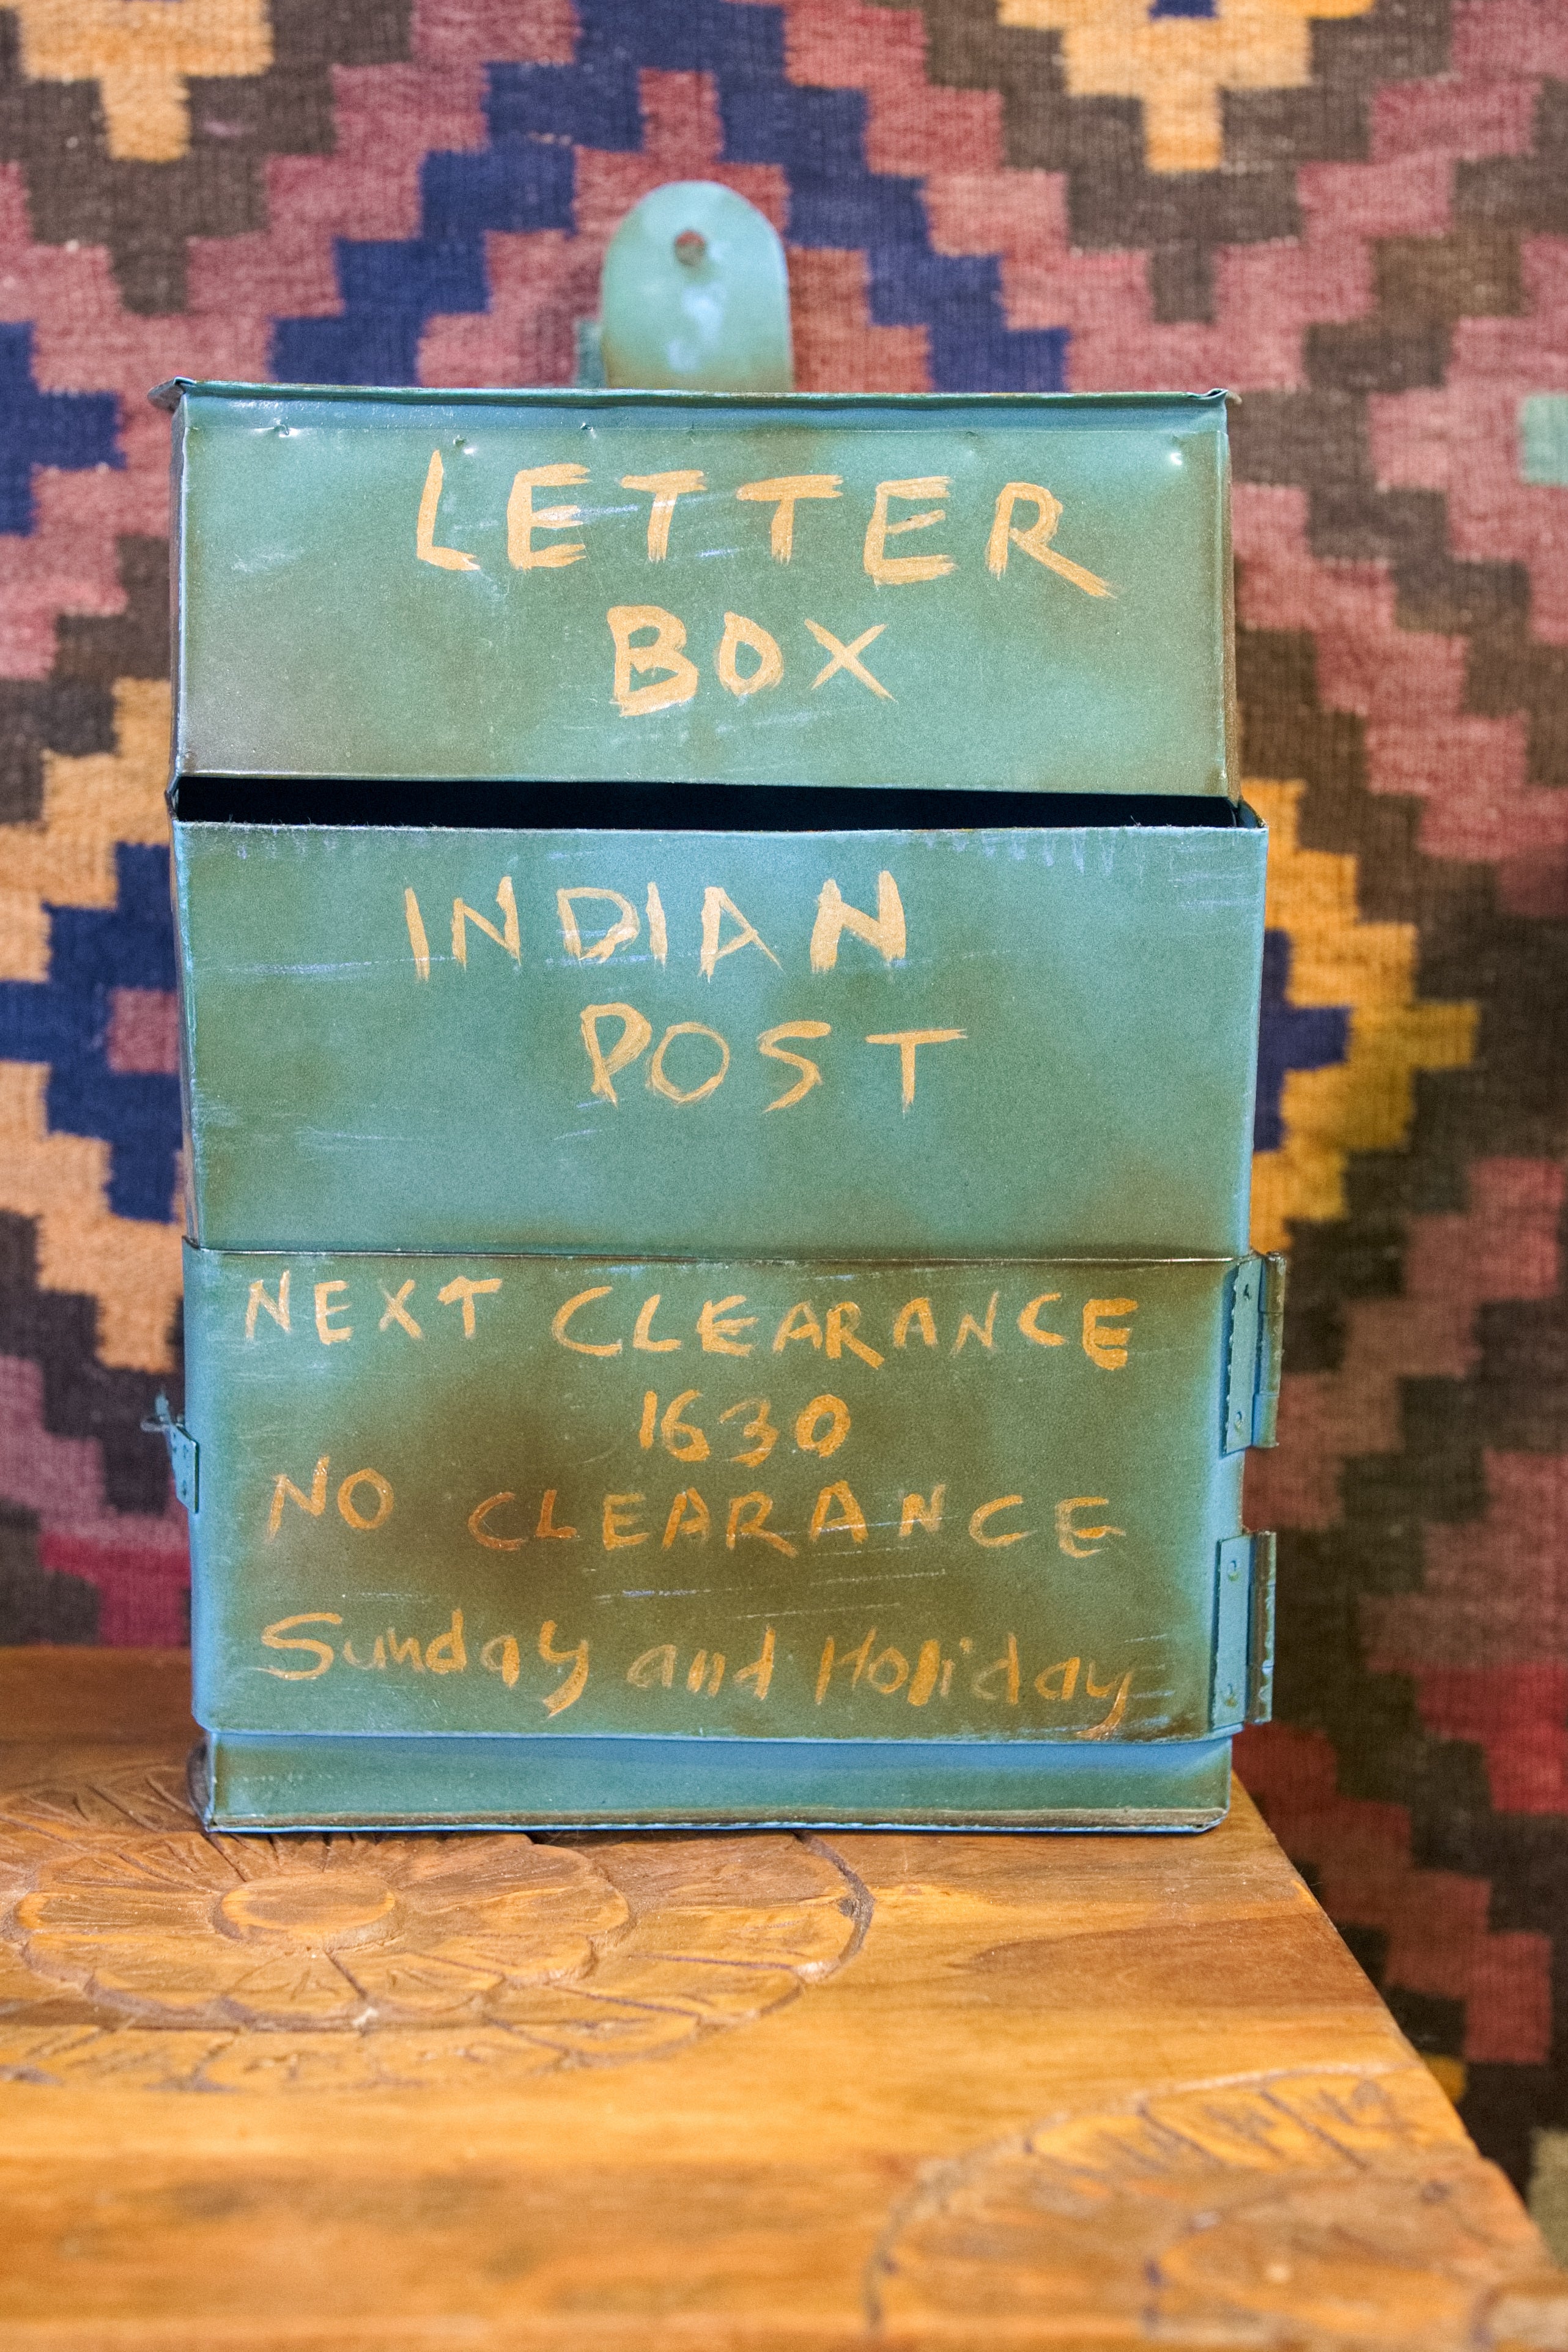 LETTER
BOX
INDIAN
POST
NEXT CLEARANCE
1630
NO CLEARANCE
Sunday and Holiday